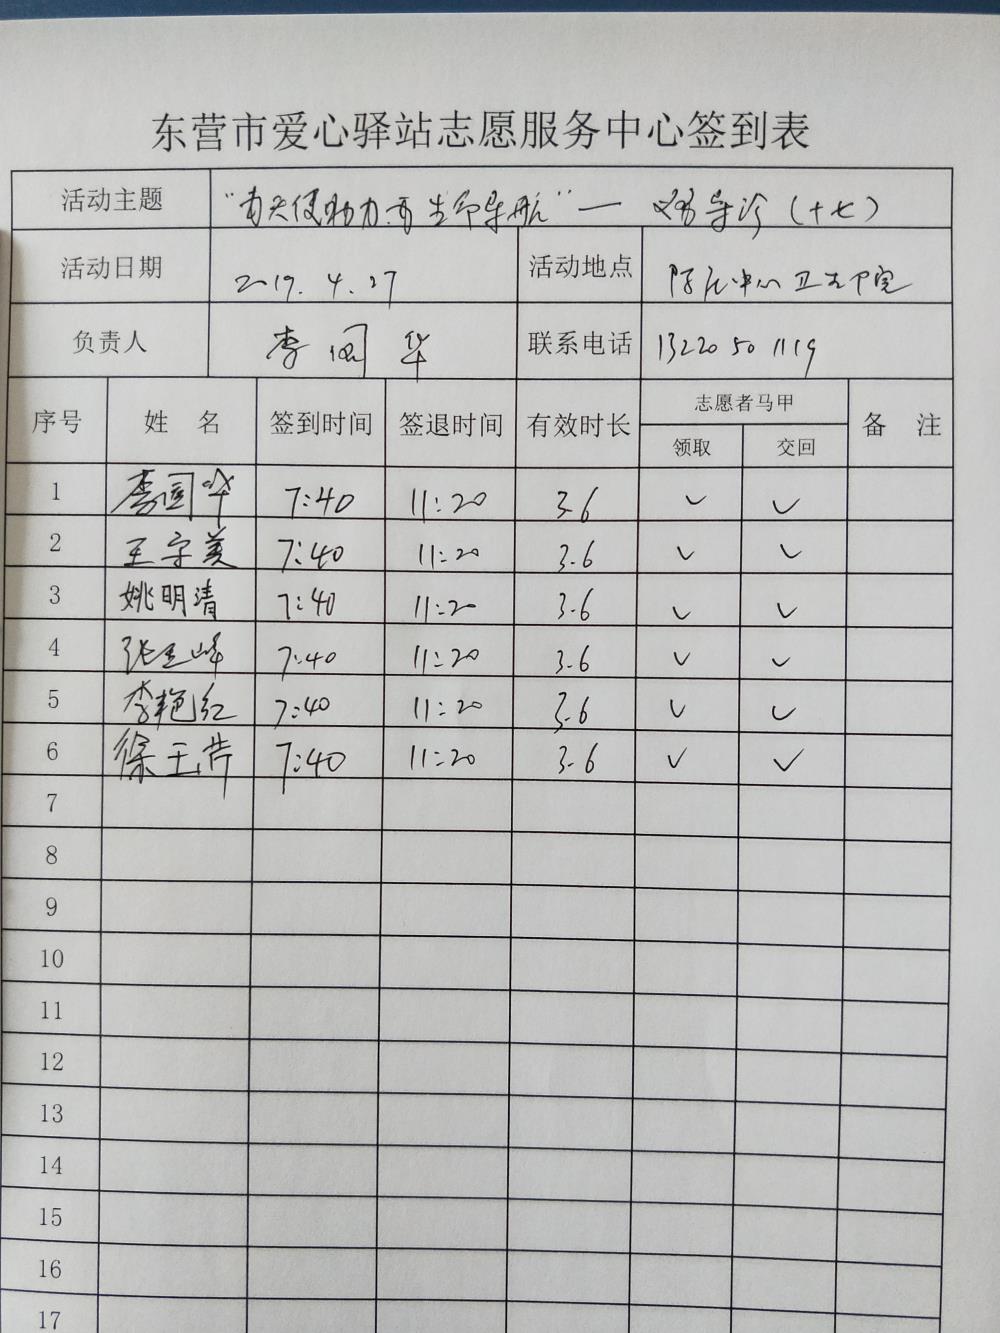 东营市爱心驿站志愿服务中心签到表
活动主题 导航”— 导诊（十七）
活动日期 2019.4.27 活动地点 中心卫生院
负责人 李国华 联系电话 13220501119
序号 姓 名 签到时间 签退时间 有效时长 志愿者马甲 备 注
领取 交回
1 李国华 7:40 11:20 3.6 ✓ ✓
2 王守美 7:40 11:20 3.6 ✓ ✓
3 姚明清 7:40 11:20 3.6 ✓ ✓
4 张 峰 7:40 11:20 3.6 ✓ ✓
5 李艳红 7:40 11:20 3.6 ✓ ✓
6 徐玉芹 7:40 11:20 3.6 ✓ ✓
7
8
9
10
11
12
13
14
15
16
17